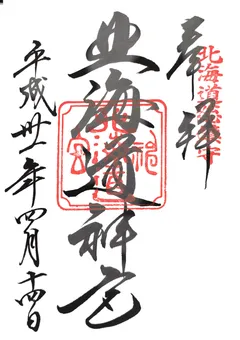 奉拝
北海道総鎮守
北海道神宮
平成卅一年四月十四日